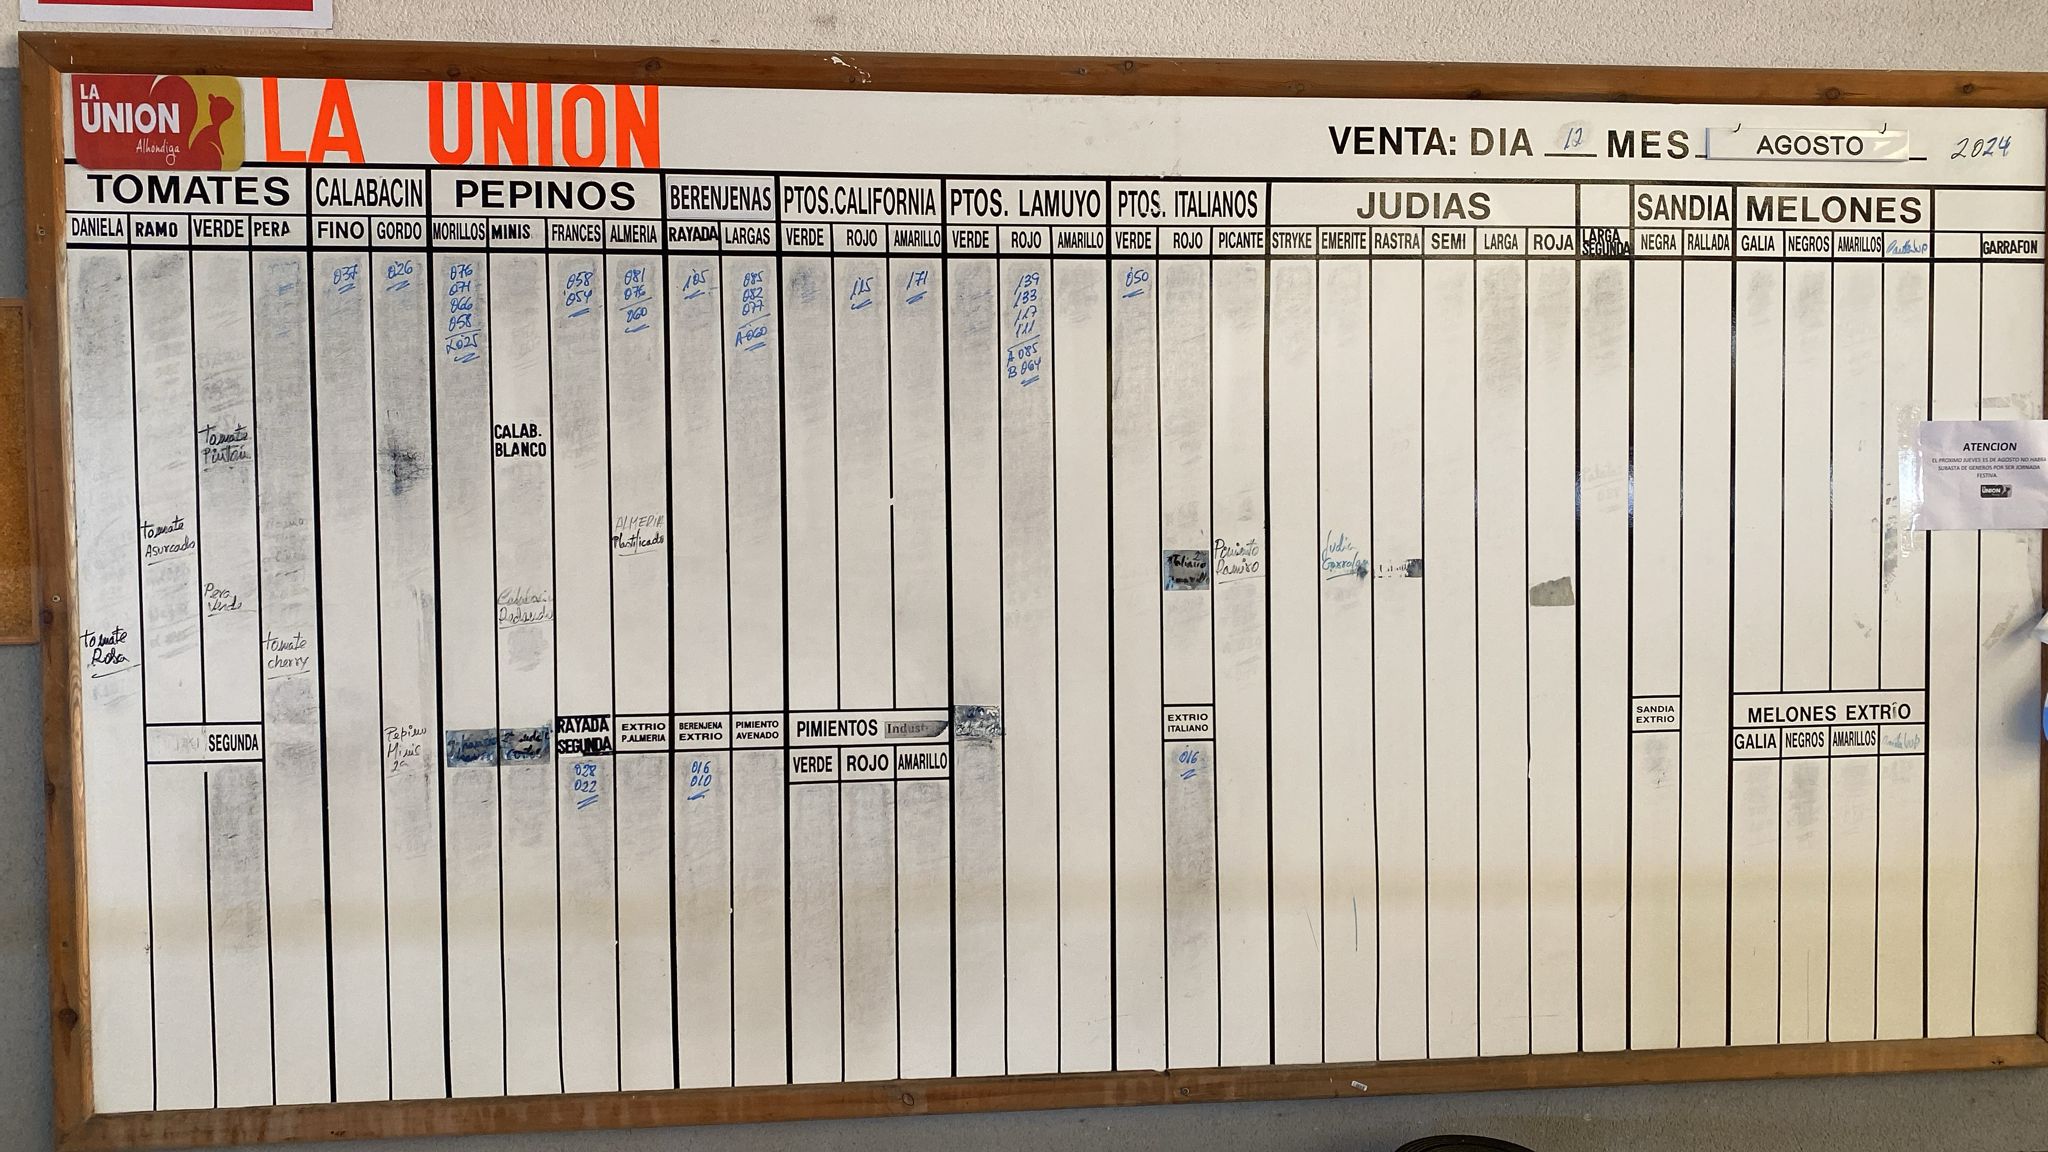 LA
UNION
Alhondiga
LA UNION
VENTA: DIA 12 MES AGOSTO 2024
TOMATES CALABACIN PEPINOS BERENJENAS PTOS.CALIFORNIA PTOS. LAMUYO PTOS. ITALIANOS JUDIAS SANDIA MELONES
DANIELA RAMO VERDE PERA FINO GORDO MORILLOS MINIS FRANCES ALMERIA RAYADA LARGAS VERDE ROJO AMARILLO VERDE ROJO AMARILLO VERDE ROJO PICANTE STRYKE EMERITE RASTRA SEMI LARGA ROJA LARGA SEGUNDA NEGRA RALLADA GALIA NEGROS AMARILLOS GARRAFON
037 026 076 058 081 105 085 115 171 139 050
071 054 076 082 133
066 060 077 117
058 A 060 111
L025 A 085
B 064
Tomate
Pinton
CALAB.
BLANCO
ATENCION
EL PROXIMO JUEVES 15 DE AGOSTO NO HABRA
SUBASTA DE GENEROS POR SER JORNADA
FESTIVA.
UNION
Tomate
Asurcado
ALMERIA
Plastificado
Pimiento
Ramiro
Judia
Garrafon
Pera
Verde
Calabacin
Redondo
Tomate
Rosa
Tomate
cherry
SEGUNDA
Pepino
Minis
2a
RAYADA
SEGUNDA
EXTRIO
P.ALMERIA
BERENJENA
EXTRIO
PIMIENTO
AVENADO
PIMIENTOS Indust
VERDE ROJO AMARILLO
EXTRIO
ITALIANO
SANDIA
EXTRIO
MELONES EXTRIO
GALIA NEGROS AMARILLOS
028 016 016
022 010